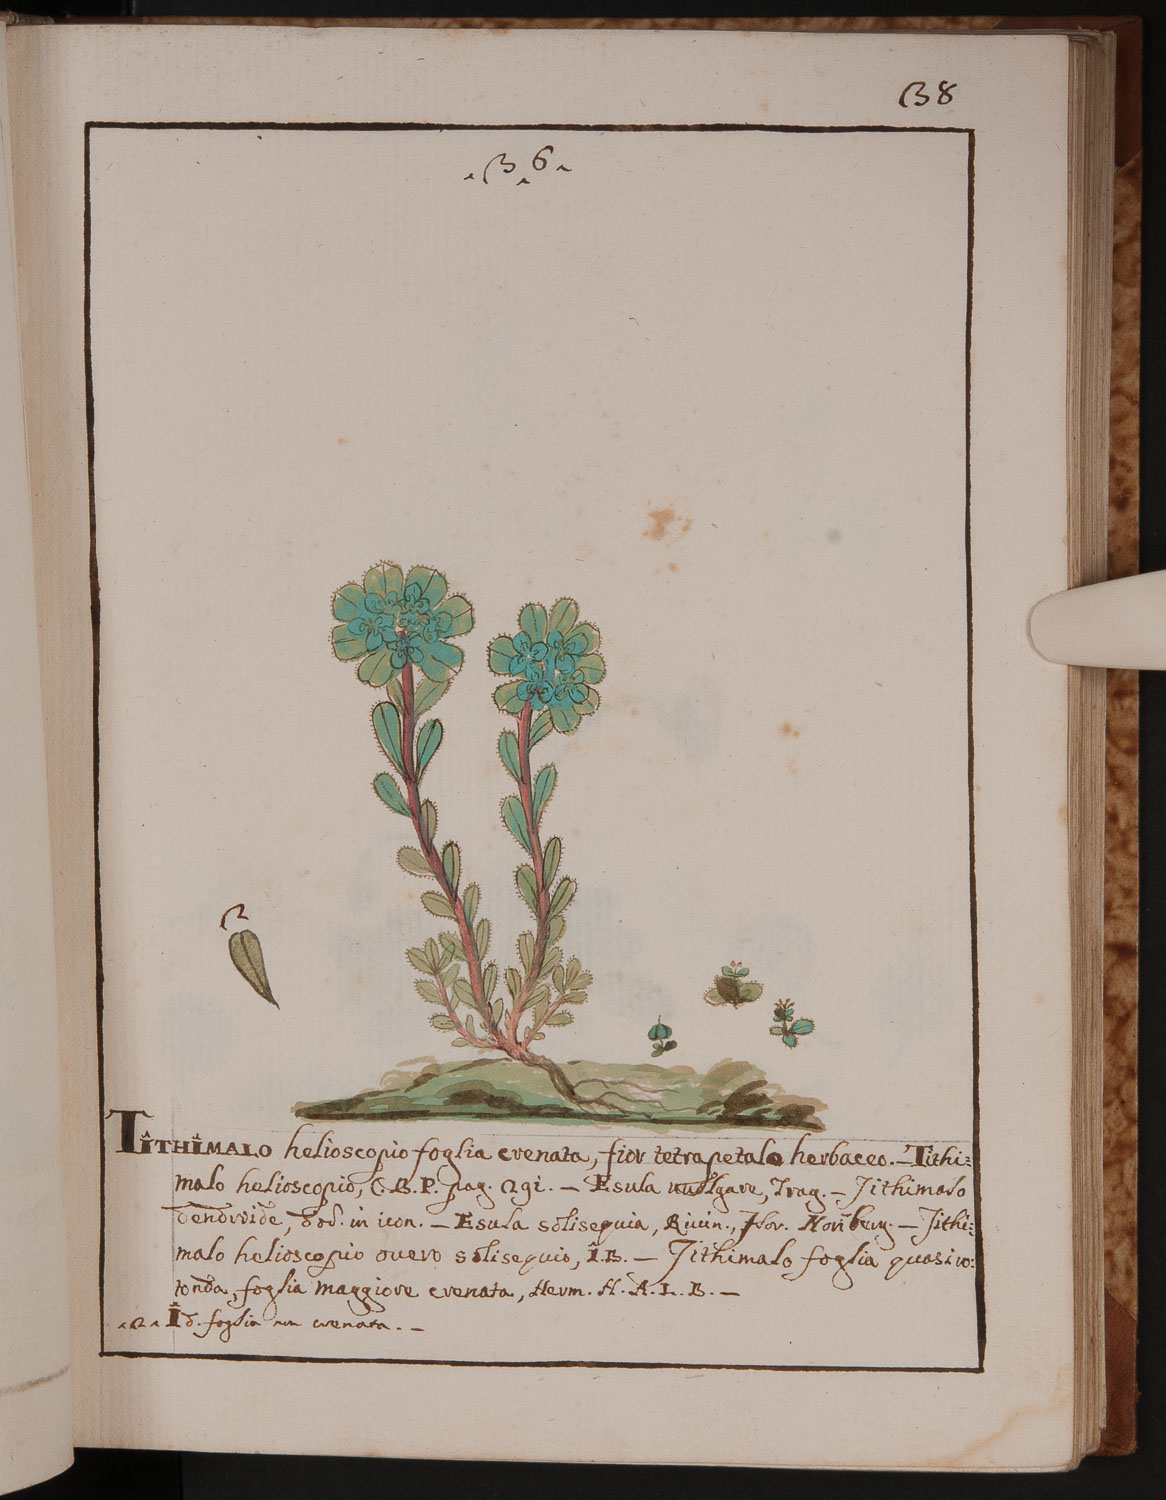 38
.36.
2
Tithimalo helioscopio foglia crenata, fior tetrapetalo herbaceo. – Tithi=
malo helioscopio, C. B. P. pag. 291. – Esula vulgare, Trag. – Tithimalo
dendroide, dod. in icon. – Esula solisequia, Rivin., flor. Norib. – Tithi=
malo helioscopio overo solisequio, I. B. – Tithimalo foglia quasi ro:
tonda, foglia maggiore crenata, Herm. H. A. L. B. –
.2. Id. foglia non crenata. –